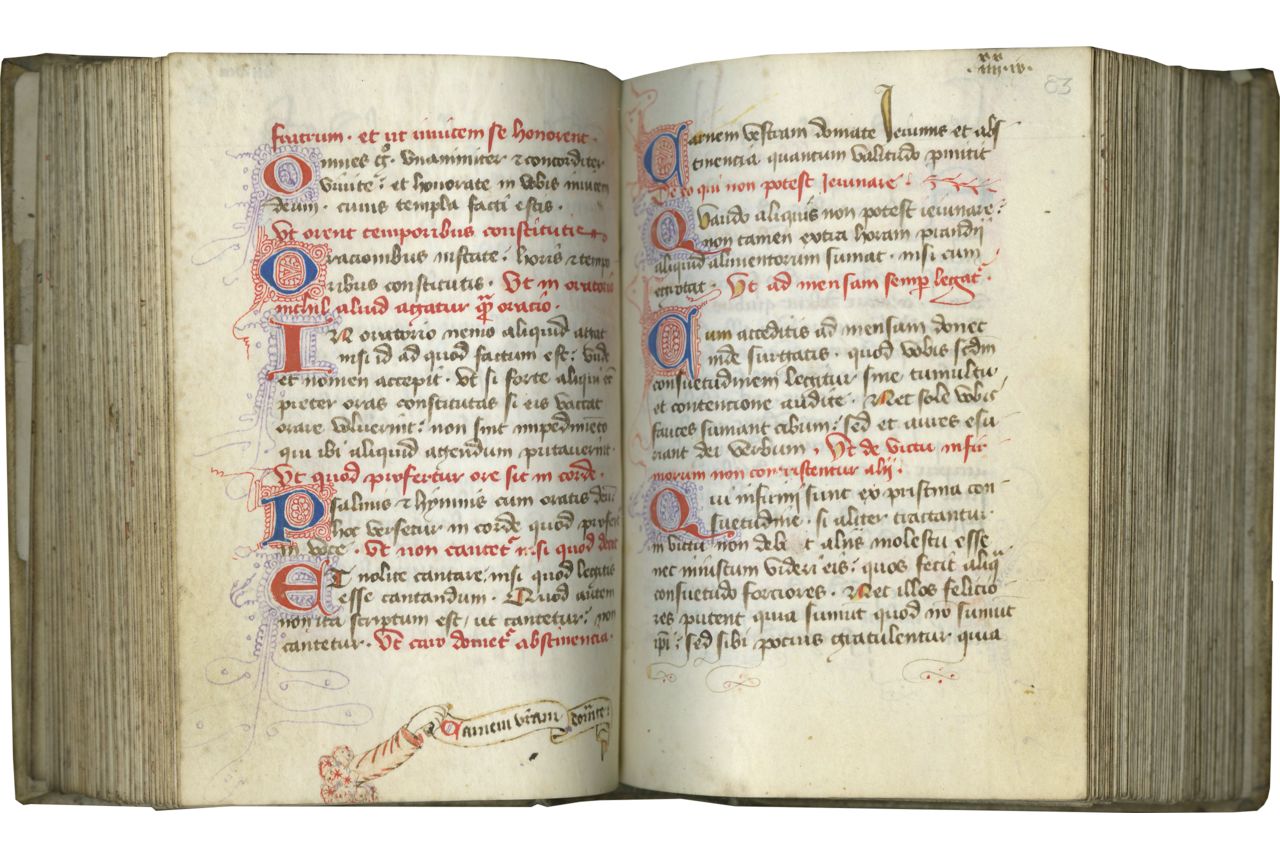 fratrum · et ut invicem se honorent ·
Omnes g° unanimiter et concorditer
vivite : et honorate in vobis invicem
deum · cuius templa facti estis ·
Ut orent temporibus constitutis
Oracionibus instate : horis et tempo
ribus constitutis · Ut in oratorio
nichil aliud agatur qua oratio ·
IN oratorio nemo aliquid agat
nisi id ad quod factum est : vnde
et nomen accepit · Vt si forte aliqui et
preter oras constitutas si eis vaccat
orare voluerint : non sint impedimeto
qui ibi aliquid agendum putaverint ·
Ut quod profertur ore sit in corde ·
Psalmis et hymnis cum oratis deu
hoc versetur in corde quod profert
in voce · Ut non cantet nisi quod debet
ET nolite cantare, nisi quod legitis
esse cantandum · Quod autem
non ita scriptum est / ut cantetur : non
cantetur · Ut caro domet abstinencia ·
Carnem vram domate :
·iiii·iv·
83
Carnem vestram domate Ieiuniis et abs
tinencia quantum valitudo pmittit
De eo qui non potest Ieiunare ·
Quando aliquis non potest ieiunare :
non tamen extra horam prandii
aliquid alimentorum sumat · nisi cum
egrotat · Ut ad mensam semp legat ·
Cum acceditis ad mensam donec
inde surgatis · quod vobis scdm
consuetudinem legitur sine tumultu
et contencione audite · Nec sole vobis
fauces sumant cibum : sed et aures esu
riant dei verbum · Ut de victu infir
morum non contristentur alii ·
Qui infirmi sunt ex pristina con
suetudine · si aliter tractantur
in victu non debet aliis molestu esse
nec iniustum videri eis : quos fecit aliq
consuetudo forciores · Nec illos felicio
res putent quia sumut quod no sumut
ipi : sed sibi pocius gratulentur quia